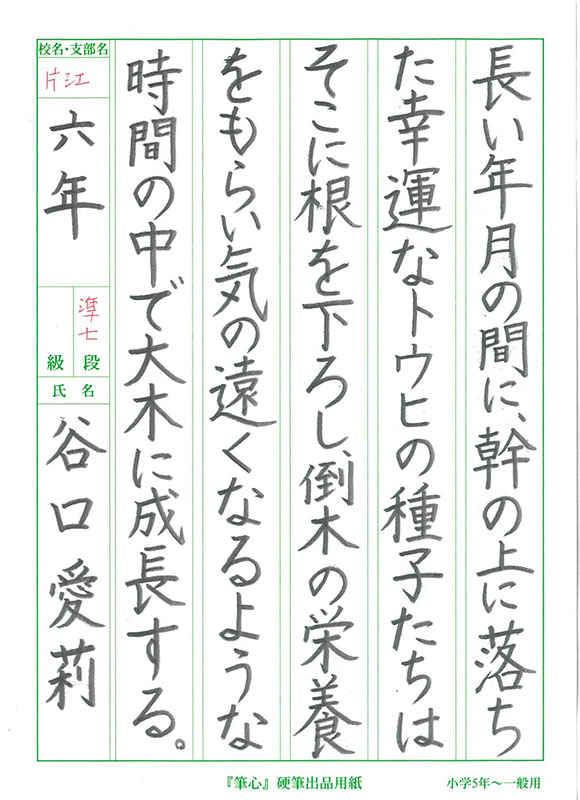 長い年月の間に、幹の上に落ち
た幸運なトウヒの種子たちは
そこに根を下ろし、倒木の栄養
をもらい気の遠くなるような
時間の中で大木に成長する。
校名・支部名
片江
六年
準七
級 段
氏 名
谷口愛莉
『筆心』硬筆出品用紙
小学5年〜一般用